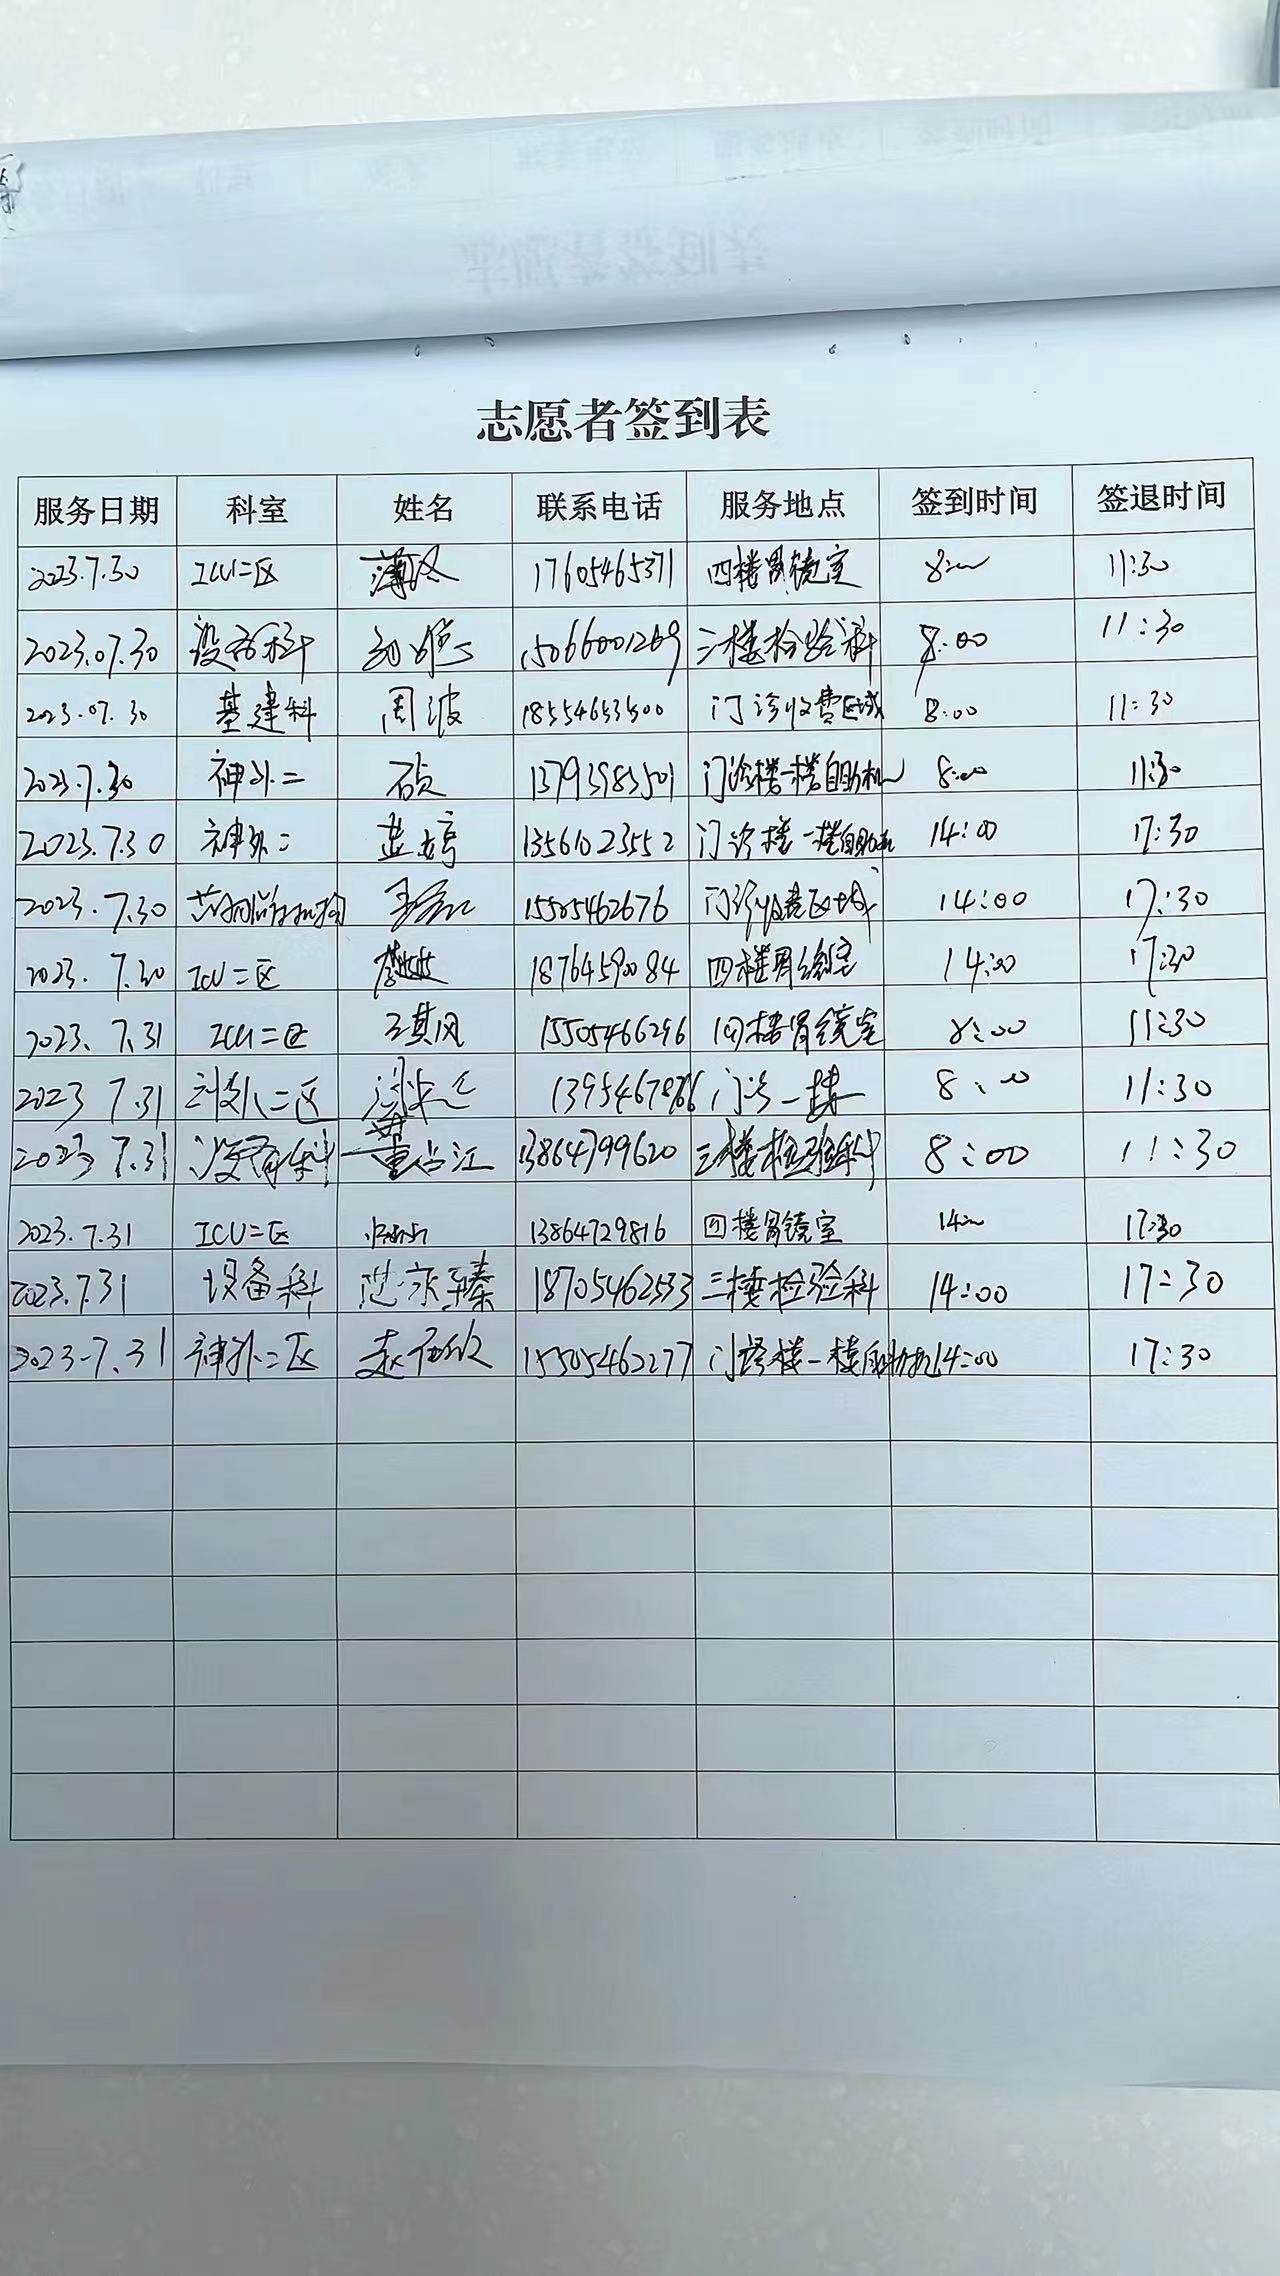 志愿者签到表
服务日期 科室 姓名 联系电话 服务地点 签到时间 签退时间
2023.7.30 ICU二区 17605465371 四楼胃镜室 8:00 11:30
2023.07.30 设备科 15066001269 三楼检验科 8:00 11:30
2023.07.30 基建科 周波 18554653500 门诊收费区域 8:00 11:30
2023.7.30 神外二 13793983501 门诊楼一楼自助机 8:00 11:30
2023.7.30 神外二 13561023552 门诊楼一楼自助机 14:00 17:30
2023.7.30 15505462676 门诊收费区域 14:00 17:30
2023.7.30 ICU二区 18764590084 四楼胃镜室 14:00 17:30
2023.7.31 ICU二区 15505466296 四楼胃镜室 8:00 11:30
2023 7.31 二区 门诊一楼 8:00 11:30
2023 7.31 设备科 13864799620 三楼检验科 8:00 11:30
2023.7.31 ICU二区 13864729816 四楼胃镜室 14:00 17:30
2023.7.31 设备科 18705462533 三楼检验科 14:00 17:30
2023-7.31 神外二区 15505462277 门诊楼一楼自助机 14:00 17:30